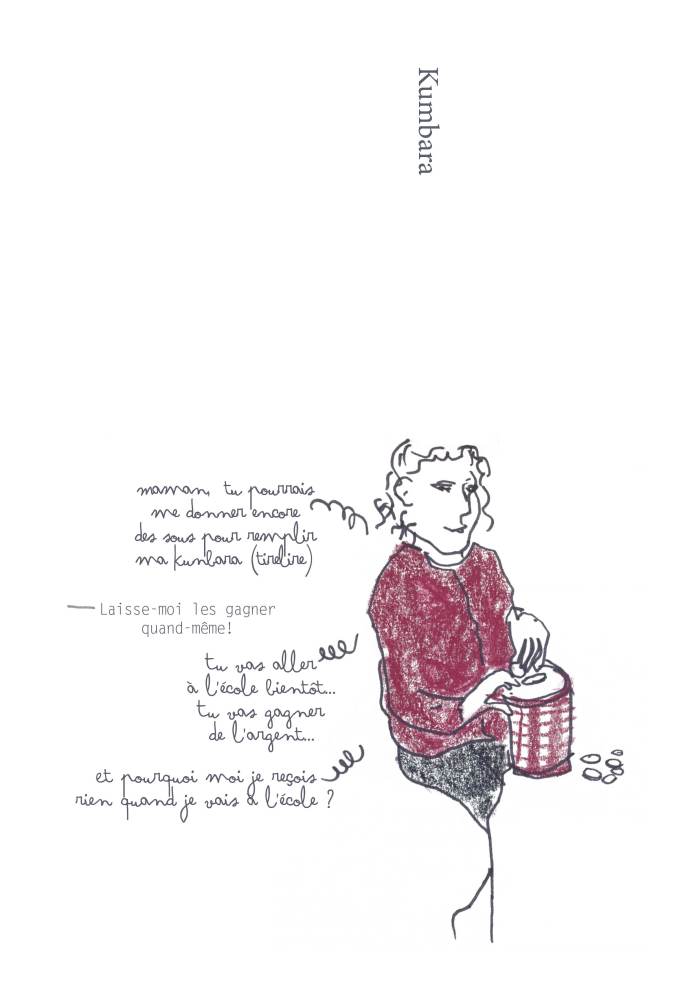 Kumbara
maman, tu pourrais
me donner encore
des sous pour remplir
ma kunbara (tirelire)
— Laisse-moi les gagner
quand-même!
tu vas aller
à l'école bientôt...
tu vas gagner
de l'argent...
et pourquoi moi je reçois
rien quand je vais à l'école ?